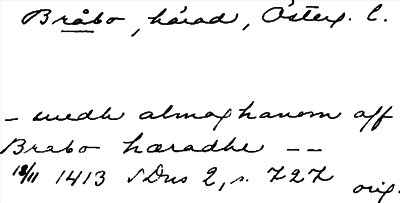 Bråbo, härad, Österg. l.
– medh almoghanom aff
Brabo hæradhe – –
18/11 1413 SDns 2, s. 727 orig.